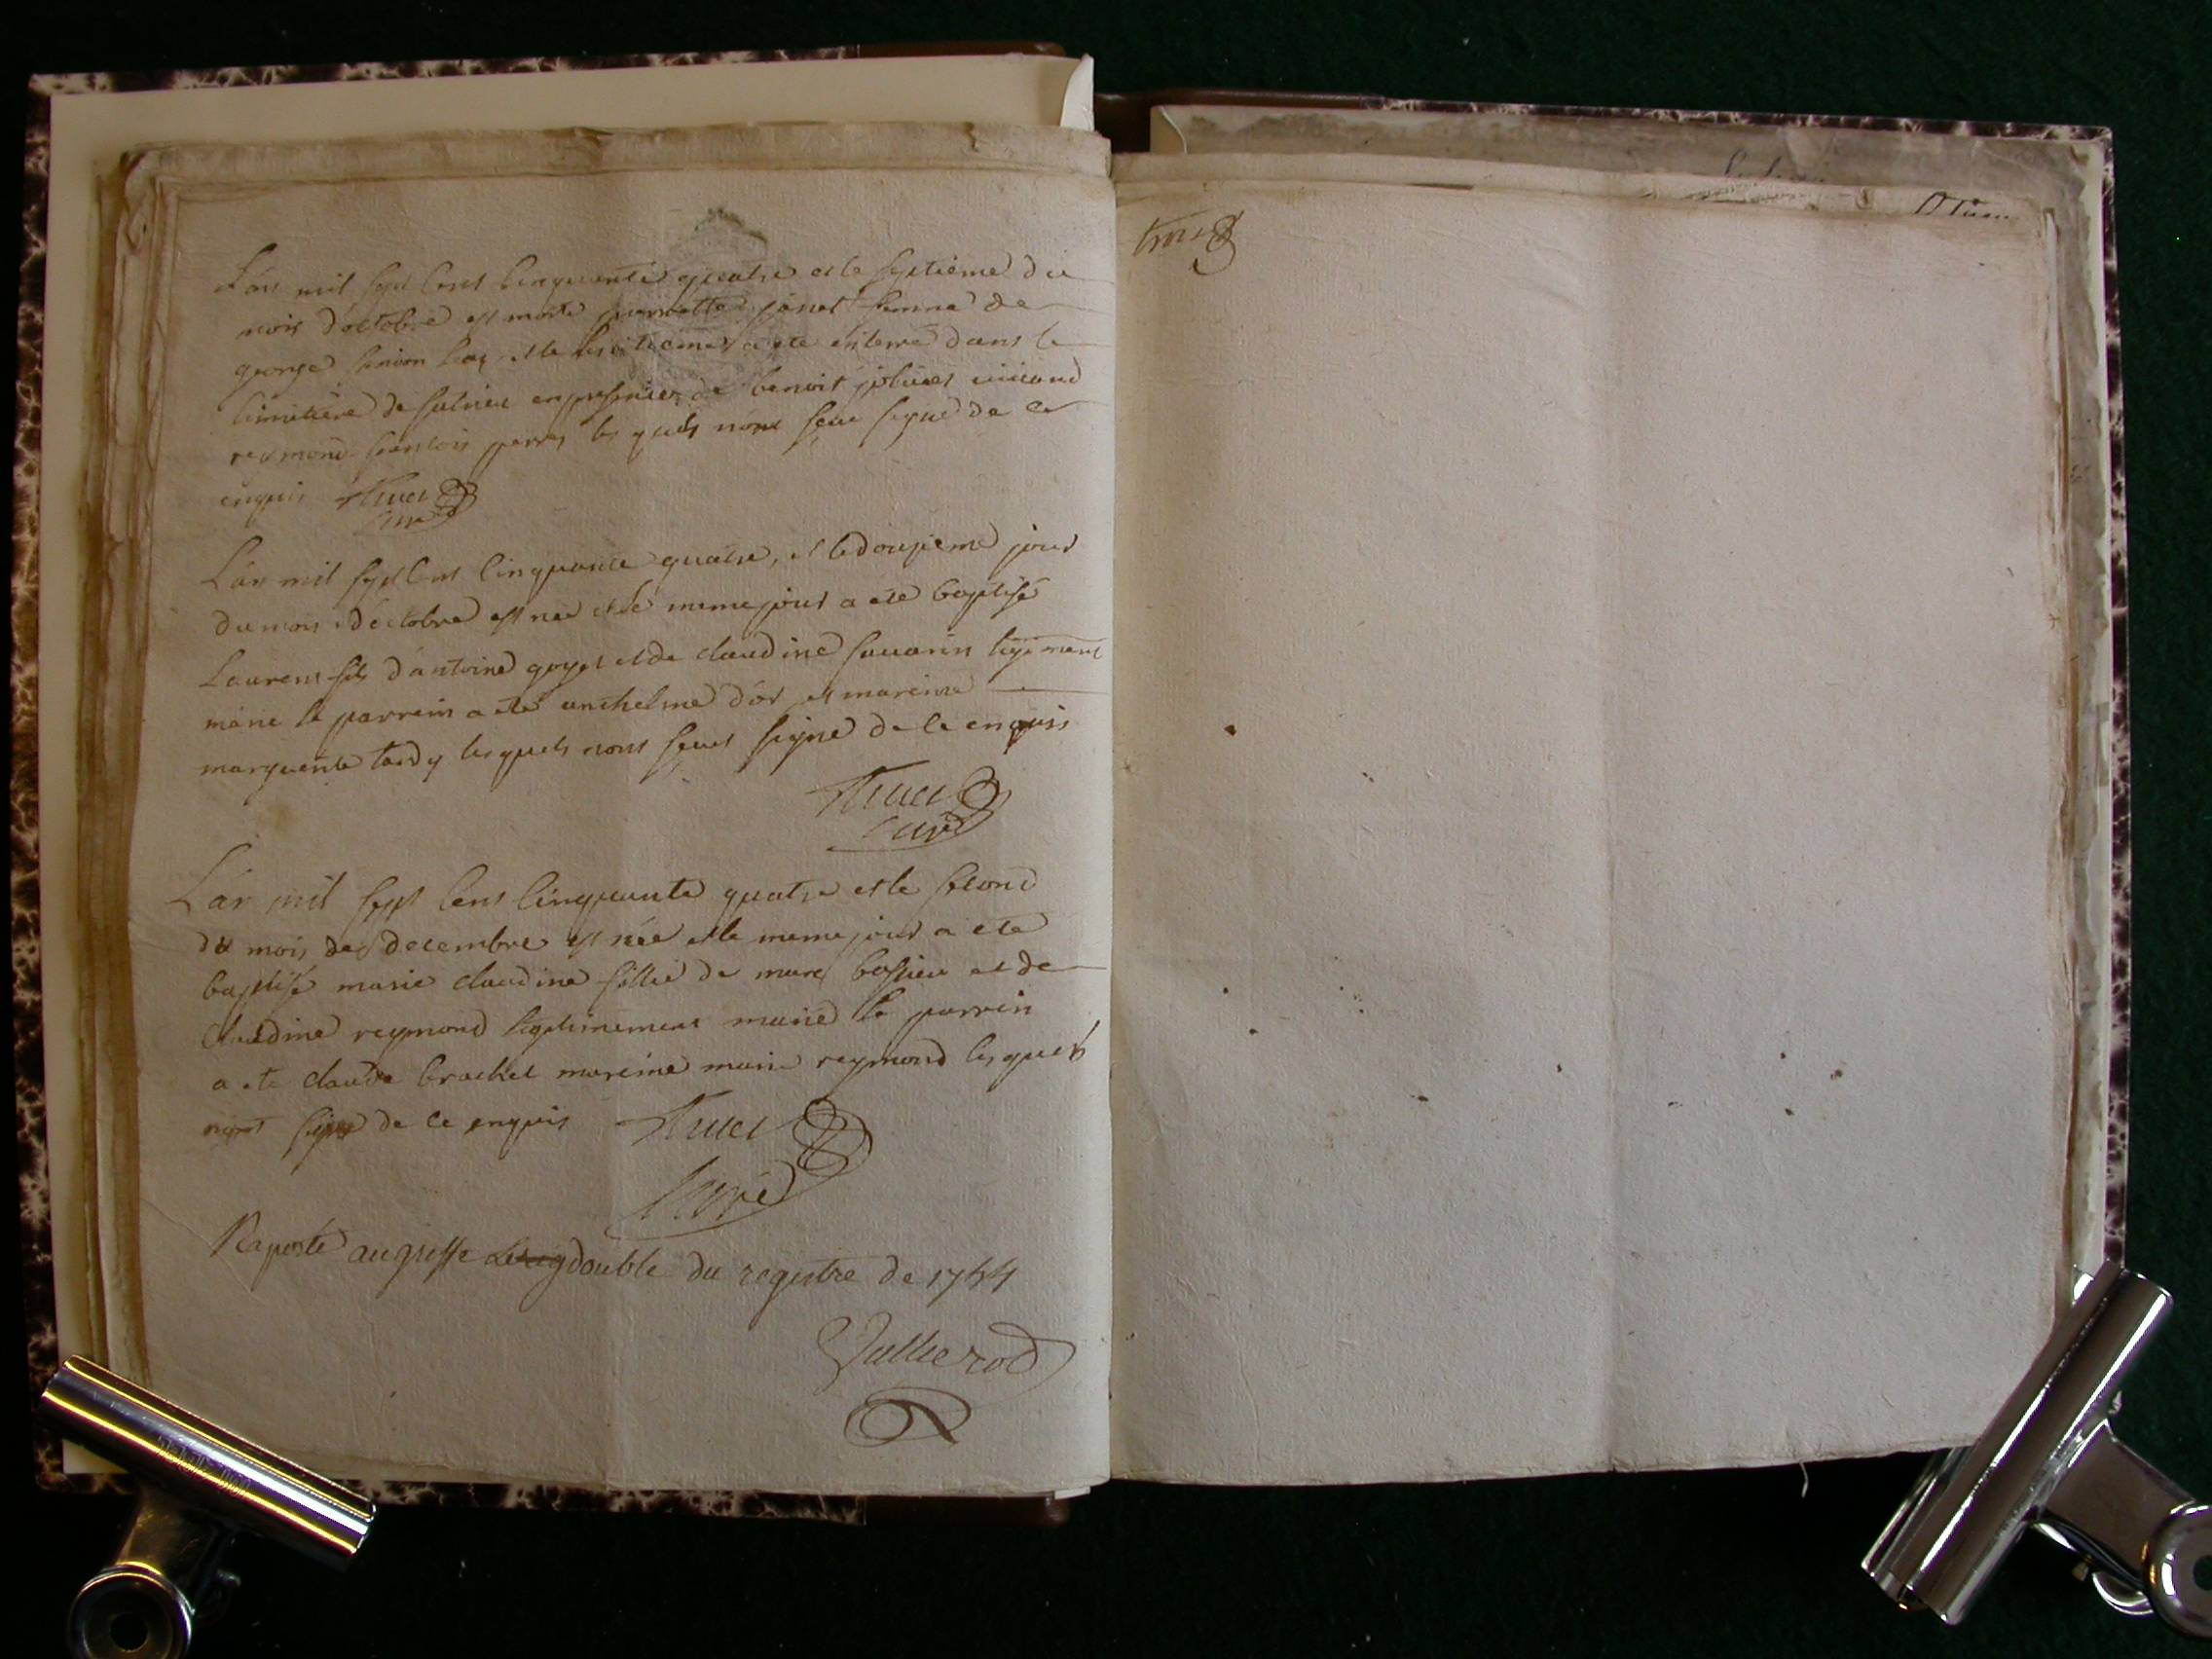 L'an mil sept cent cinquante quatre et le septième du
mois d'octobre est morte pierrette janet femme de
george et le huitieme a ete enterré dans le
cimitière de en presence de benoit
reymond les quels n'ont sçeu signé de ce
enquis Truct
curé
L'an mil sept cent cinquante quatre, et le douzieme jour
du mois d'octobre est née et le meme jour a ete baptisé
Laurent fils d'antoine goyet et de claudine sauarin
marie le parrein a ete anthelme d'or et mareine
marguerite tardy les quels n'ont sçeut signé de ce enquis
Truct
curé
L'an mil sept cent cinquante quatre et le second
du mois de decembre est née et le meme jour a ete
baptisé marie claudine fillie de marc bossieu et de
Claudine reymond legitimement marié le parrein
a ete claude brachet mareine marie reymond les quels
n'ont signé de ce enquis Truct
curé
Raporté au greffe double du registre de 1754
Vallierod
trois